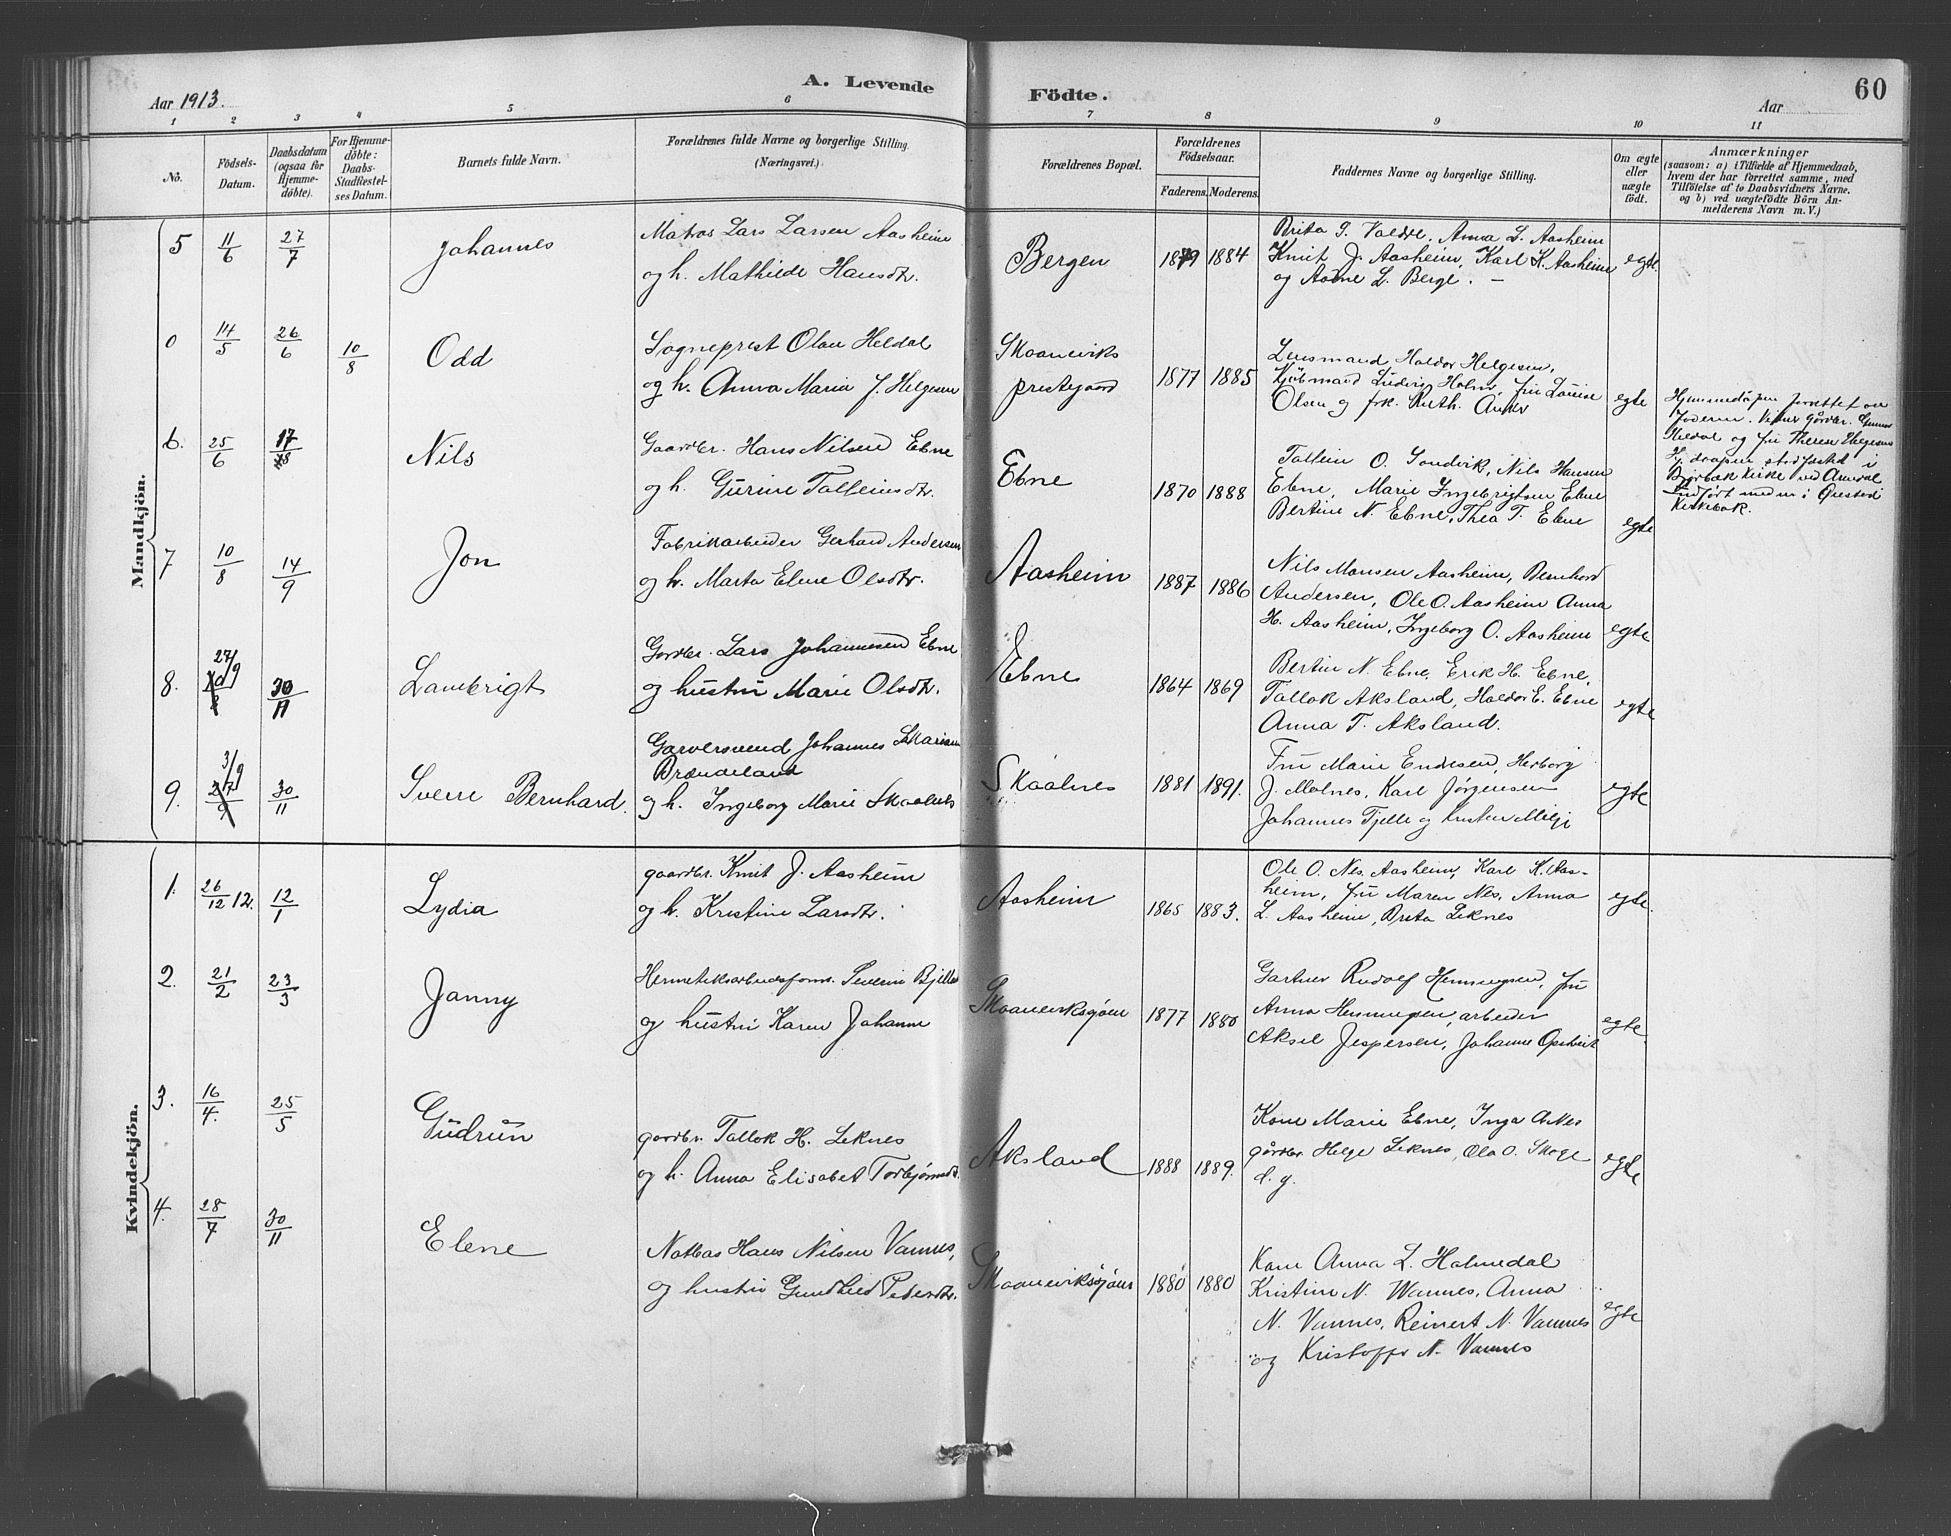 Aar 1913.
A. Levende
Födte.
Aar
60
1 2 3 4 5 6 7 8 9 10 11
No.
Födsels-
Datum.
Daabsdatum
(ogsaa før
Hjemme-
döbte).
For Hjemme-
döbte:
Daabs-
Stadfæstel-
ses Datum.
Barnets fulde Navn.
Forældrenes fulde Navne og borgerlige Stilling.
(Næringsvei.)
Forældrenes Bopæl.
Forældrenes
Födselsaar.
Faderens. Moderens.
Faddernes Navne og borgerlige Stilling.
Om ægte
eller
uægte
födt.
Anmærkninger
(saasom: a) i Tilfælde af Hjemmedaab,
hvem der har forrettet samme, med
Tilföielse af to Daabsvidners Navne.
og b) ved uægtefödte Börn An-
melderens Navn m. V.)
Mandkjön.
5 11/6 27/7 Johannes
Matros Lars Larsen Aasheim
og h. Mathilde Hansdtr.
Bergen 1879 1884
Brita T. Valdre, Anna L. Aasheim
Knut J. Aasheim, Karl K. Aasheim
og Aarne L. Berge. –
egte.
0 14/5 26/6 10/8 Odd
Sogneprest Olav Heldal
og h. Anna Maria J. Helgesen
Skaaneviks
prestegaard 1877 1885
Lensmand Haldor Helgesen,
Kjøbmand Ludvig Holm, fru Louise
Olsen og frk. Ruth. Anker
egte
Hjemmedåpen forrettet av
faderen. Vidner gårdbr. Gunnar
Heldal og fru Therese Helgesen
Hj. daapen stadfæsted i
Bjorbæk Kirke ved Arendal
Indført med nr i Øiestad
Kirkebok.
6. 25/6 17/8 Nils
Gaardbr. Hans Nilsen Ebne
og h. Gurine Tolleinsdtr.
Ebne 1870 1888
Tollein O. Sandvik, Nils Hansen
Ebne, Marie Ingebrigtsen Ebne
Bertine N. Ebne, Thea T. Ebne
egte
7 10/8 14/9 Jon
Fabrikarbeider Gerhard Andersen
og h. Marta Elene Olsdtr.
Aasheim 1887 1886
Nils Monsen Aasheim, Bernhard
Andersen, Ole O. Aasheim Anna
H. Aasheim, Ingeborg O. Aasheim
egte
8. 27/9 30/11 Lambrigt
Gardbr. Lars Johannesen Ebne
og hustru Marie Olsdtr.
Ebne 1864 1869
Bertin N. Ebne, Erik H. Ebne,
Tollok Aksland, Haldor E. Ebne
Anna T. Aksland.
egte
9. 3/9 30/11 Sverre Bernhard.
Garversvend Johannes Skarian
Brændeland
og h. Ingeborg Marie Skaalnes
Skaalnes 1881 1891.
Fru Marie Endresen, Herborg
J. Molnes, Karl Jørgensen
Johannes Tjelle og Kristen Milje
egte
Kvindekjön.
1. 26/12 12. 12/1 Lydia
gaardbr. Knut J. Aasheim
og h. Kristine Larsdtr.
Aasheim 1865 1883.
Ole O. Nes, Aasheim, Karl K. Aas-
heim, fru Maren Nes, Anna
L. Aasheim, Brita Leknes
egte.
2. 21/2 23/3 Janny
Hermetikarbeidsform. Severin Bjelland
og hustru Karen Johanne
Skaaneviksjøen 1877 1880
Gartner Rudolf Henningsen, fru
Anna Henningsen, arbeider
Aksel Jespersen, Johanne Opshvit
egte.
3. 16/4. 25/5 Gudrun
gardbr. Tollok H. Leknes
og h. Anna Elisabet Torbjørnsdtr.
Aksland 1888 1889.
Kone Marie Ebne, Inga A. Nes
gårdbr Helge Leknes, Ola O. Skoge
d. y.
egte
4. 28/7 30/11 Elene
Notbas Hans Nilsen Vannes,
og hustru Gundhild Pedersdtr.
Skaaneviksjøen 1880 1880
Kone Anna L. Halmedal
Kristine N. Wannes, Anna
N. Vannes, Reinert N. Vannes
og Kristoffer N. Vannes
egte